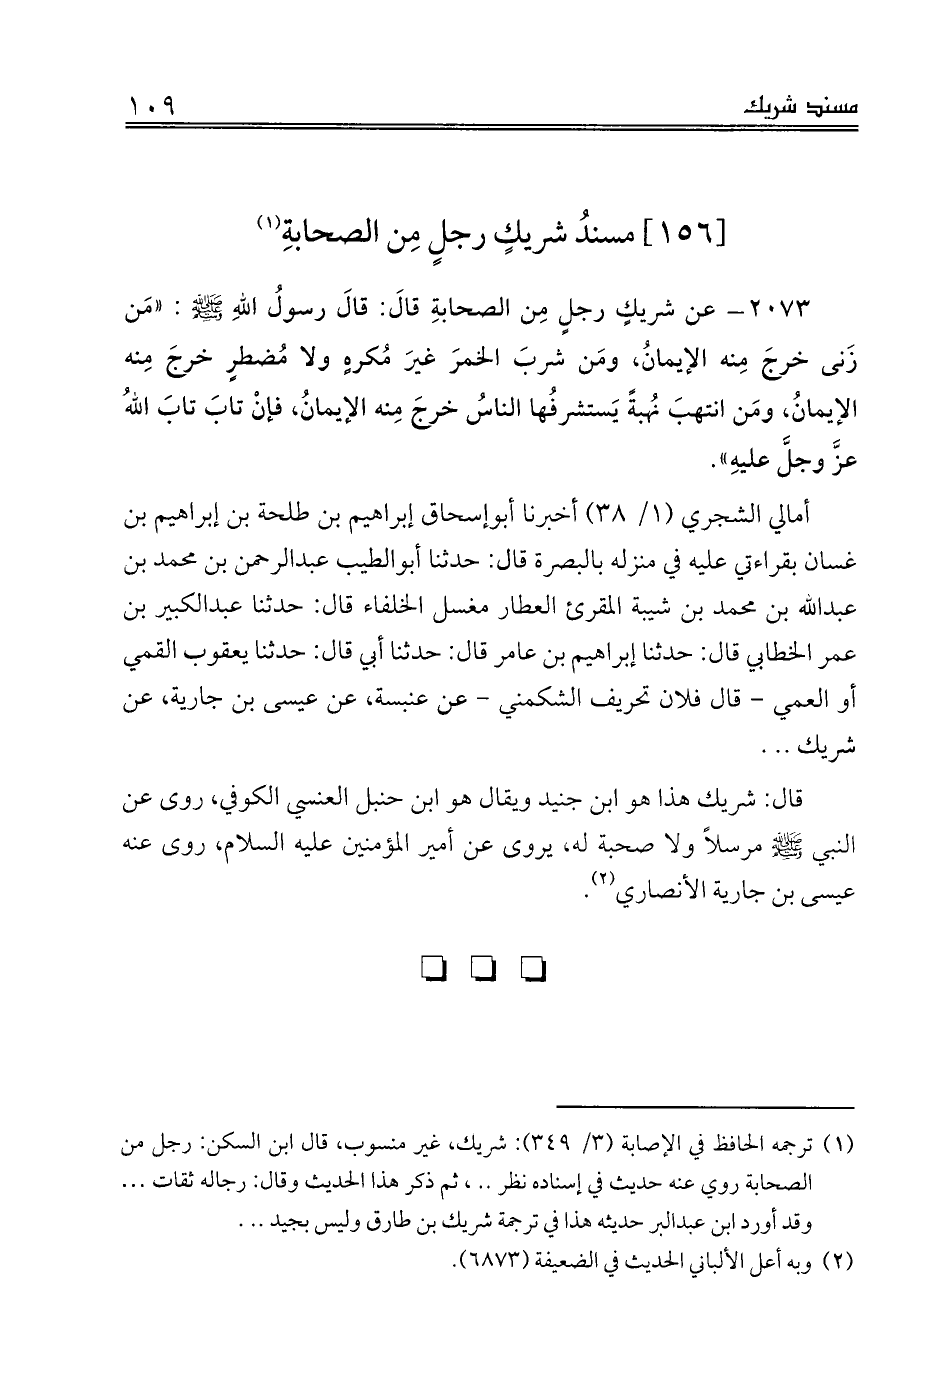 مسند شريك ١٠٩
[١٥٦] مسندُ شريكٍ رجلٍ مِن الصحابةِ(١)
٢٠٧٣- عن شريكٍ رجلٍ مِن الصحابةِ قالَ: قالَ رسولُ اللهِ ﷺ : «مَن
زَنى خرجَ مِنه الإيمانُ، ومَن شربَ الخمرَ غيرَ مُكرهٍ ولا مُضطرٍ خرجَ مِنه
الإيمانُ، ومَن انتهبَ نُهبةً يَستشرفُها الناسُ خرجَ مِنه الإيمانُ، فإنْ تابَ تابَ اللهُ
عزَّ وجلَّ عليهِ».
أمالي الشجري (١/ ٣٨) أخبرنا أبوإسحاق إبراهيم بن طلحة بن إبراهيم بن
غسان بقراءتي عليه في منزله بالبصرة قال: حدثنا أبوالطيب عبدالرحمن بن محمد بن
عبدالله بن محمد بن شيبة المقرئ العطار مغسل الخلفاء قال: حدثنا عبدالكبير بن
عمر الخطابي قال: حدثنا إبراهيم بن عامر قال: حدثنا أبي قال: حدثنا يعقوب القمي
أو العمي - قال فلان تحريف الشكمني - عن عنبسة، عن عيسى بن جارية، عن
شريك ...
قال: شريك هذا هو ابن جنيد ويقال هو ابن حنبل العنسي الكوفي، روى عن
النبي ﷺ مرسلاً ولا صحبة له، يروى عن أمير المؤمنين عليه السلام، روى عنه
عيسى بن جارية الأنصاري(٢).
(١) ترجمه الحافظ في الإصابة (٣/ ٣٤٩): شريك، غير منسوب، قال ابن السكن: رجل من
الصحابة روي عنه حديث في إسناده نظر .. ، ثم ذكر هذا الحديث وقال: رجاله ثقات ...
وقد أورد ابن عبدالبر حديثه هذا في ترجمة شريك بن طارق وليس بجيد ...
(٢) وبه أعل الألباني الحديث في الضعيفة (٦٨٧٣).